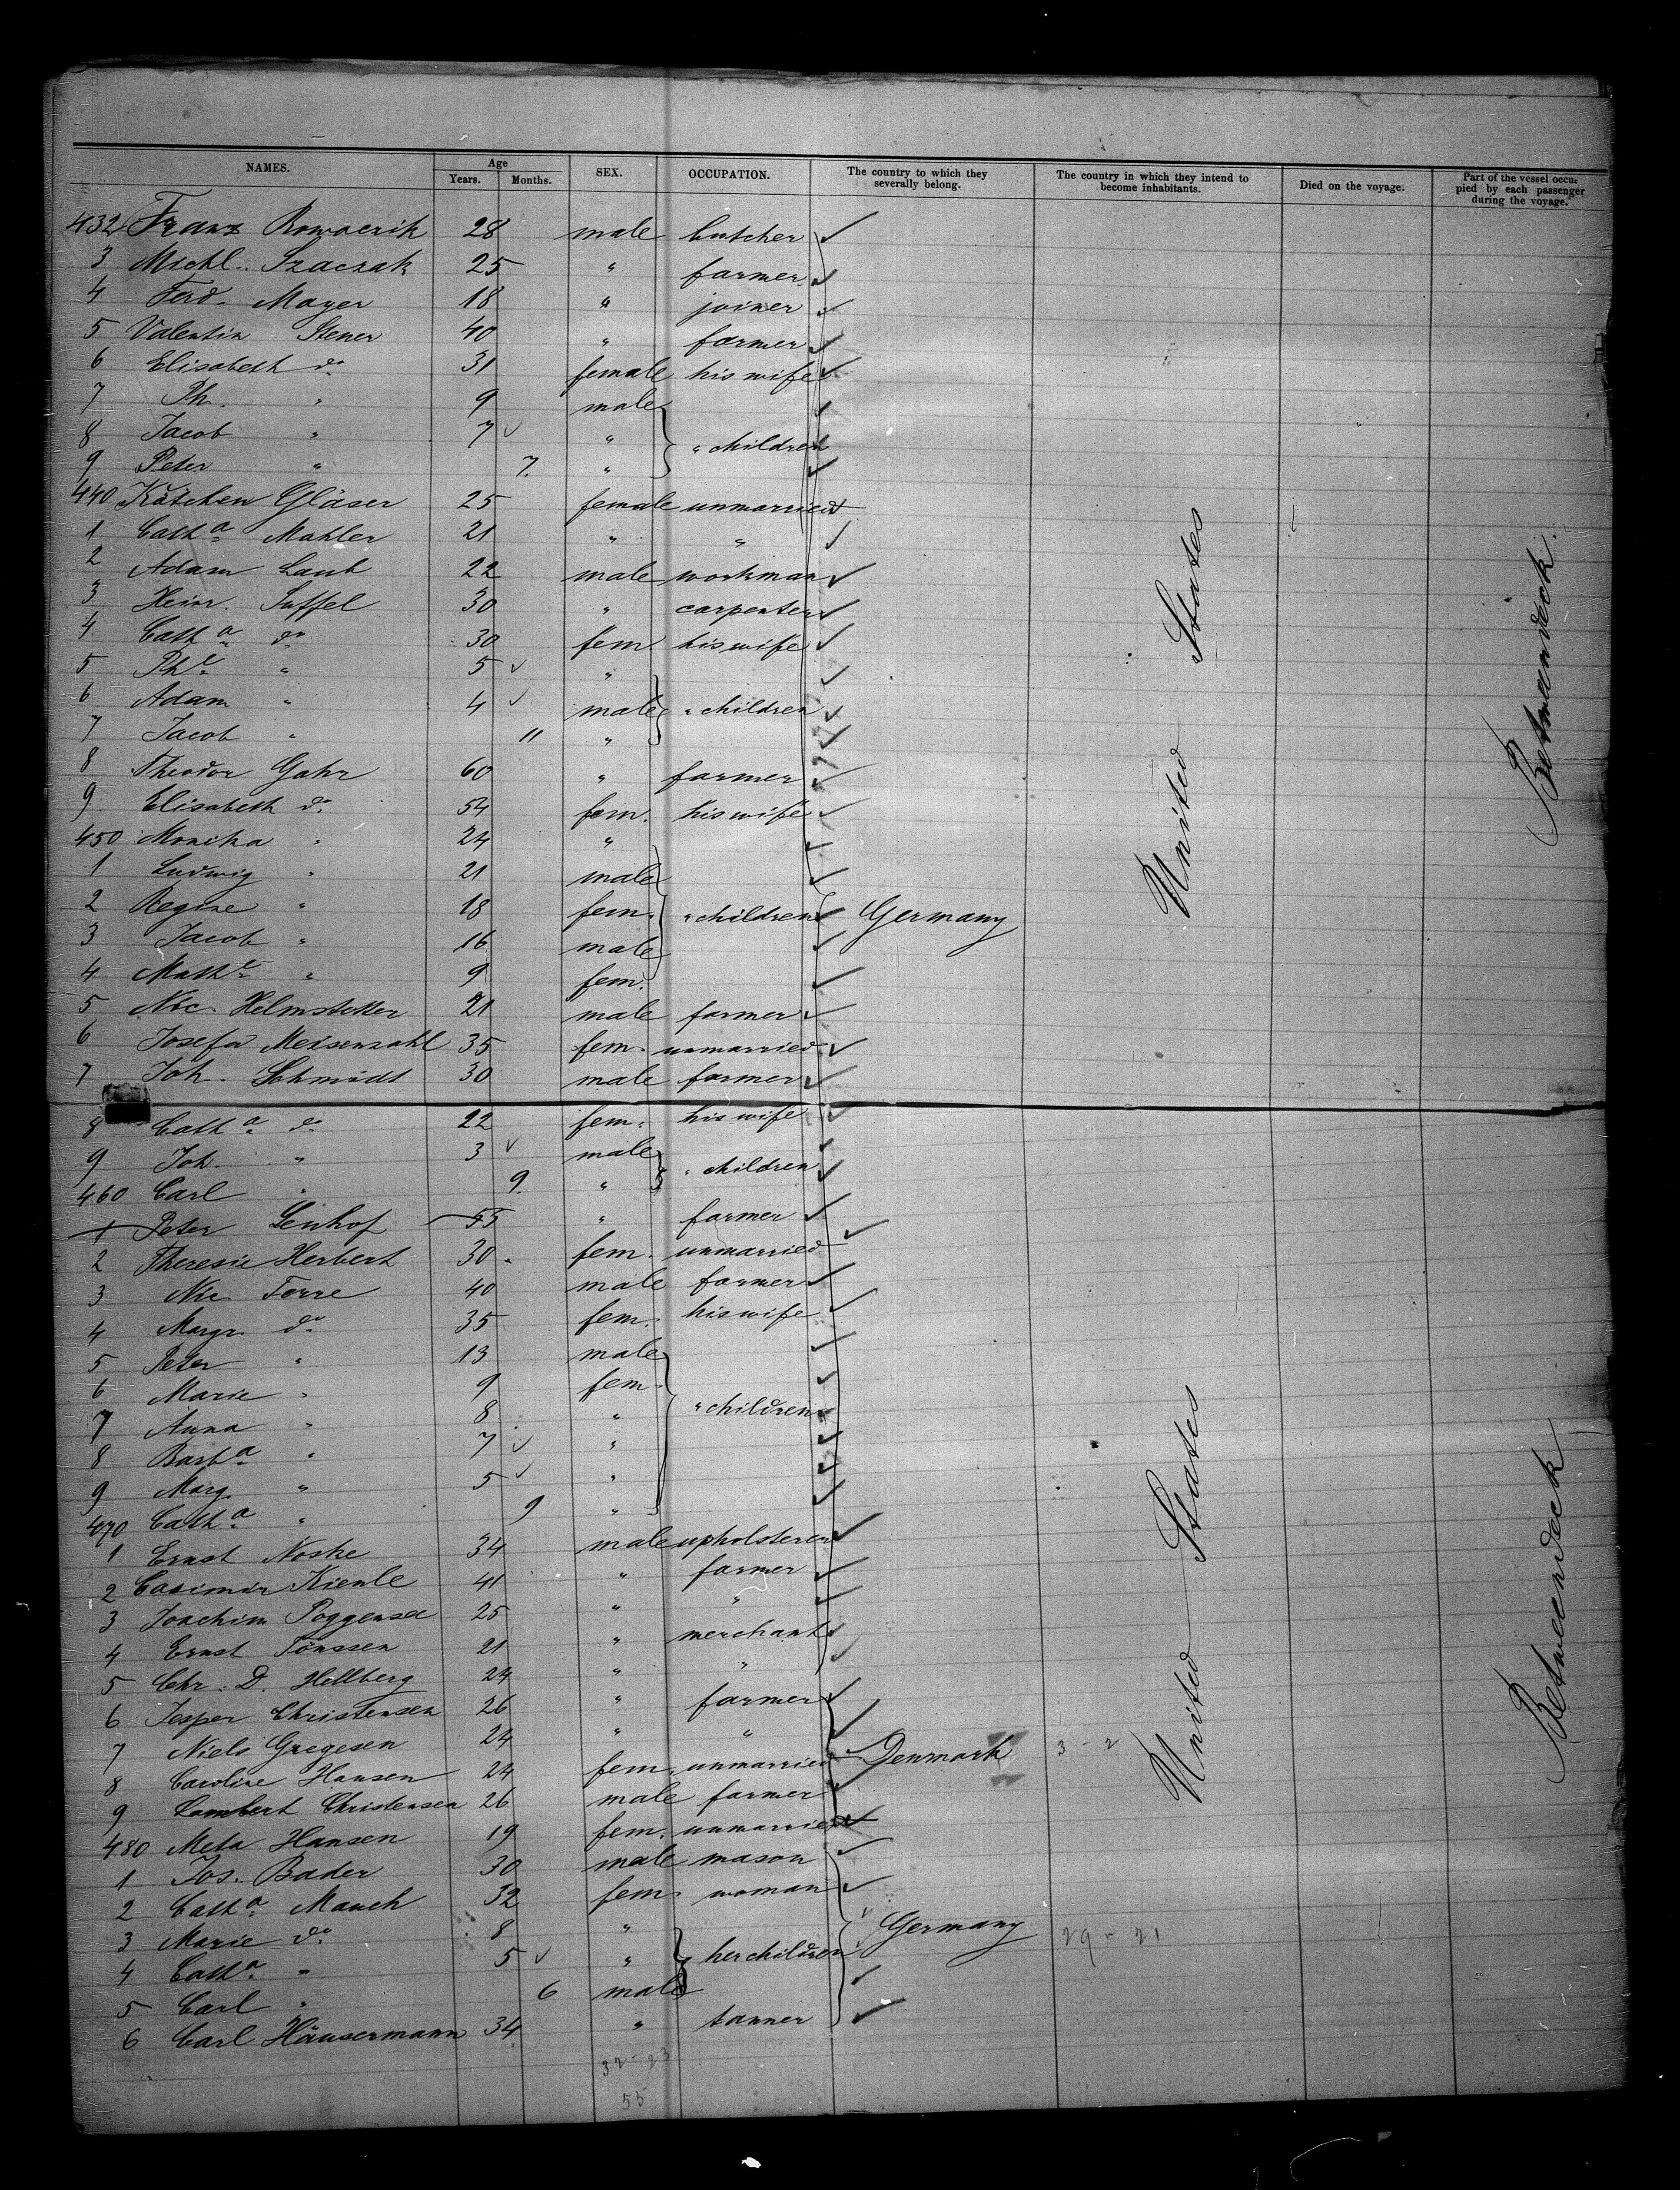 NAMES. Age Years. Months. SEX. OCCUPATION. The country to which they severally belong. The country in which they intend to become inhabitants. Died on the voyage. Part of the vessel occupied by each passenger during the voyage.
432 Franz 28 male butcher
3 Michl. Szaczak 25 " farmer
4 Ferd. Mayer 18 " joiner
5 Valentin Stener 40 " farmer
6 Elisabeth do 31 female his wife
7 Ph. " 9 male
8 Jacob " 7 " " children
9 Peter " 7. "
440 Kätchen Gläser 25 female unmarried
1 Catha Mahler 21 " "
2 Adam Laub 22 male workman
3 Heinr. Suffel 30 " carpenter
4 Catha do 30 fem his wife
5 Phe " 5 "
6 Adam " 4 male " children
7 Jacob " 11 "
8 Theodor Gahr 60 " farmer
9 Elisabeth do 54 fem. his wife
450 Monika " 24 "
1 Ludwig " 21 male
2 Regine " 18 fem. " children Germany
3 Jacob " 16 male
4 Mathe " 9 fem.
5 Nic. Helmstetter 21 male farmer
6 Josefa Meisenzahl 35 fem. unmarried
7 Joh. Schmidt 30 male farmer
8 Catha do 22 fem. his wife
9 Joh. " 3 male " children
460 Carl " 9. "
1 Peter Lenhof 55 " farmer
2 Theresie Herbert 30. fem. unmarried
3 Nic. Ferre 40 male farmer
4 Margr. do 35 fem. his wife
5 Peter " 13 male
6 Marie " 9 fem.
7 Anna " 8 " " children
8 Barba " 7 "
9 Marg. " 5 "
470 Catha " 9 "
1 Ernst Noske 34 male upholsterer
2 Casimir Kienle 41 " farmer
3 Joachim Poggensee 25 " "
4 Ernst Tönssen 21 " merchant
5 Chr. D. Hellberg 24 " "
6 Jesper Christensen 26 " farmer
7 Niels Gregesen 24 " "
8 Caroline Hansen 24 fem. unmarried Denmark 3 - 2
9 Lambert Christensen 26 male farmer
480 Meta Hansen 19 fem. unmarried
1 Jos. Bader 30 male mason
2 Catha Mauch 32 fem. woman
3 Marie do 8 " Germany 29 - 21
4 Catha " 5 " her children
5 Carl " 6 male
6 Carl Häusermann 34 " tanner
32 - 23
55
United States
Betweendeck.
United States
Betweendeck